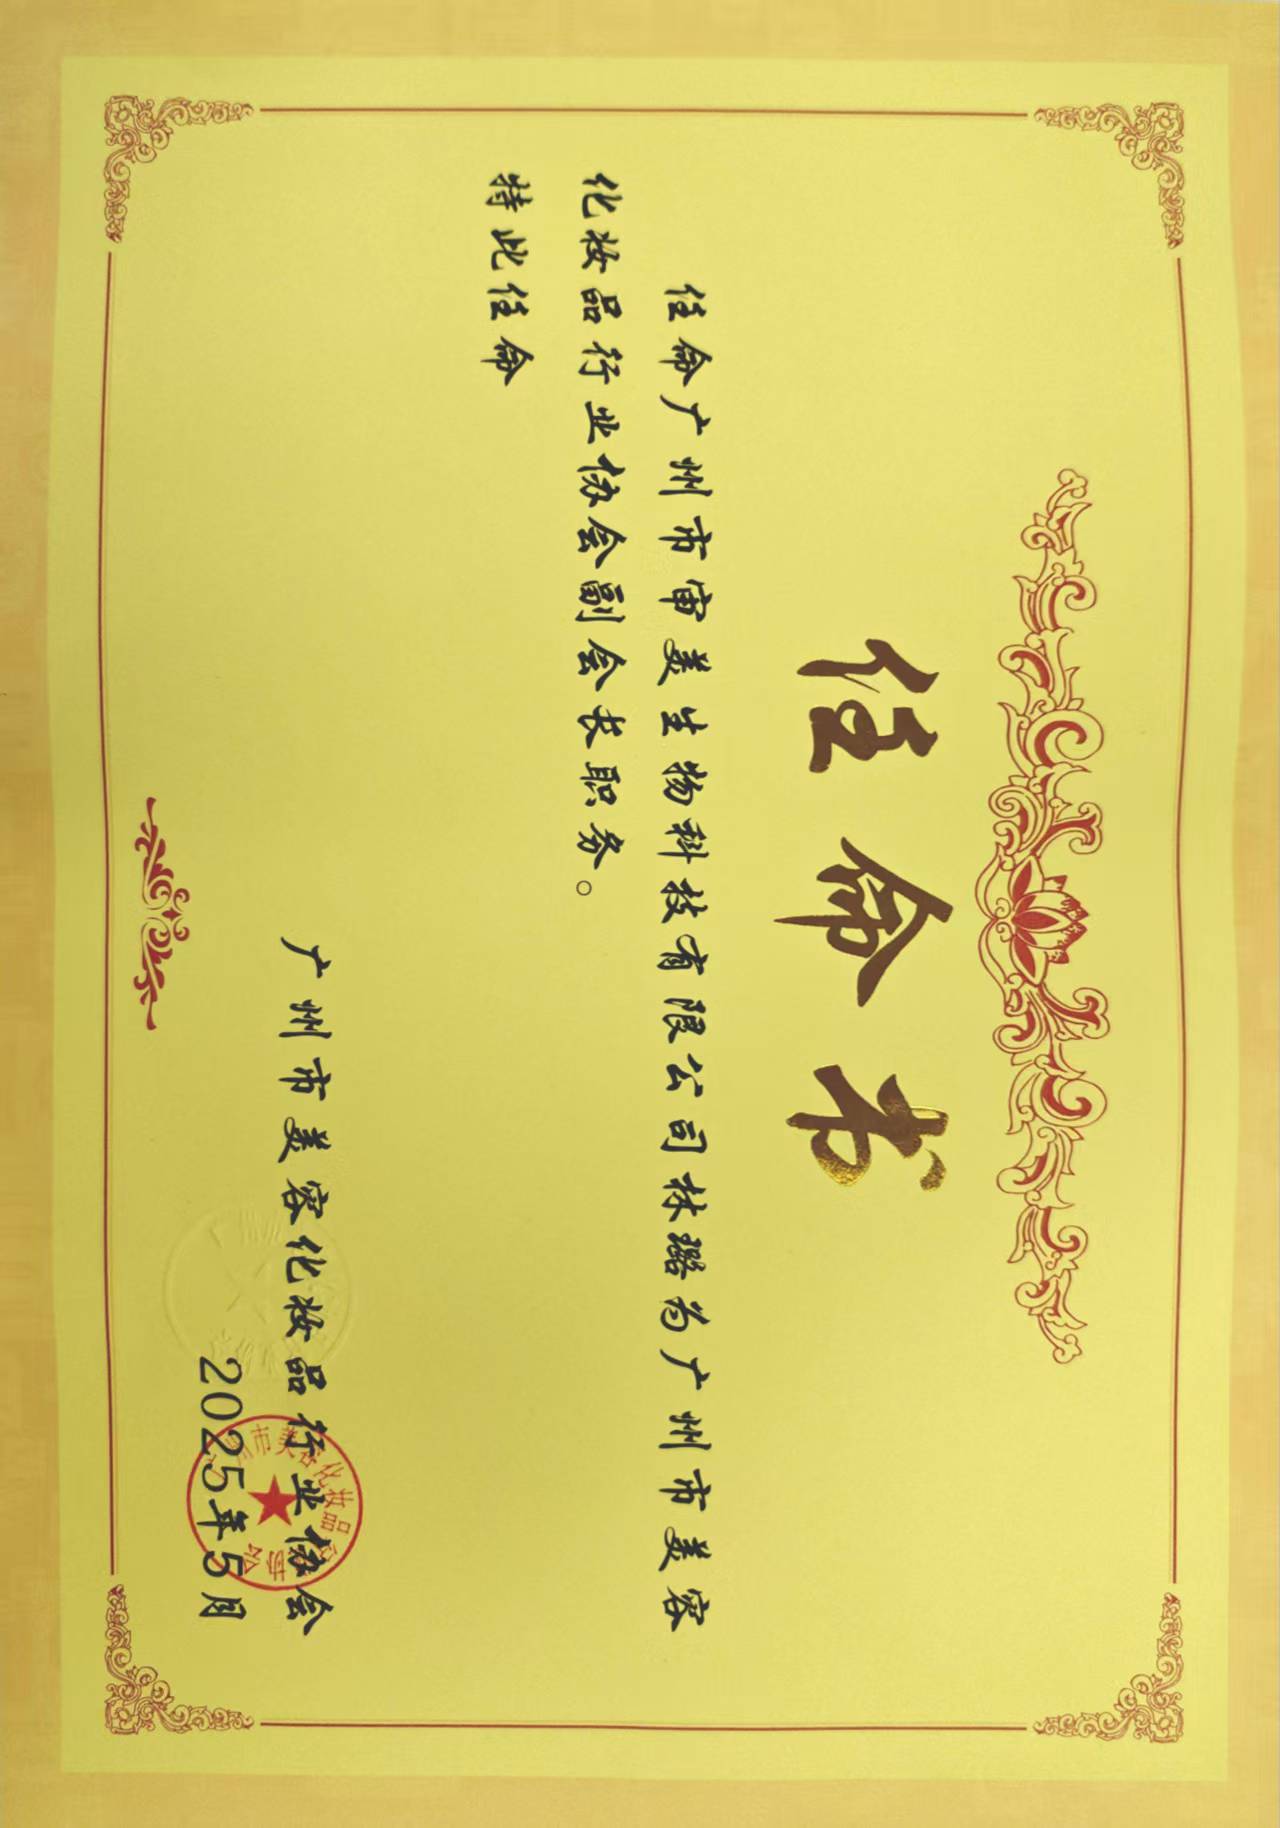 任命书
任命广州市审美生物科技有限公司林璐为广州市美容
化妆品行业协会副会长职务。
特此任命
广州市美容化妆品行业协会
2025年5月
州市美容化妆品行业协会